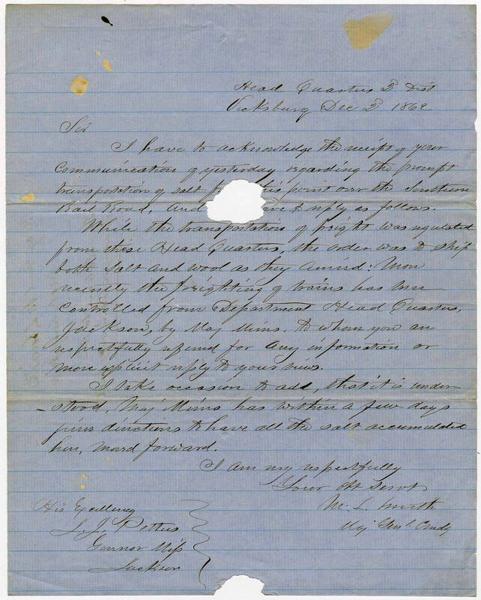 Head Quarters 2d Dist
Vicksburg Dec 2d 1862
Sir
I have to acknowledge the receipt of your
Communication of yesterday regarding the prompt
transportation of salt from this point over the Southern
Rail Road, and reply as follows.
While the transportation of freight was regulated
from these Head Quarters, the order was to ship
both salt and wool as they arrived: More
recently the freighting of trains has been
controlled from Department Head Quarters,
Jackson, by Maj Mims, to whom you are
respectfully referred for any information or
more explicit reply to your views.
I take occasion to add, that it is under-
-stood, Maj Mims has within a few days
given directions to have all the salt accumulated
here, moved forward.
I am very respectfully
Your Obt Servt
M. L. Smith
Maj Genl Comdg
His Excellency
J. J. Pettus
Governor Miss
Jackson